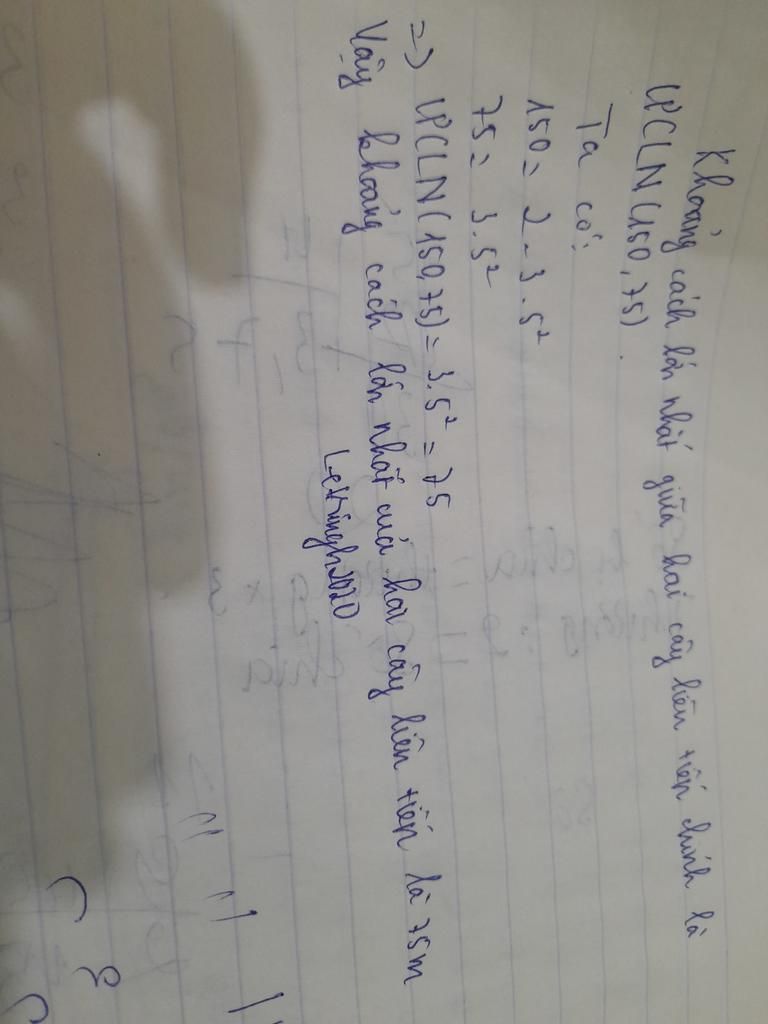 Khoảng cách lớn nhất giữa hai cây liên tiếp chính là
ƯCLN(150,75).
Ta có:
150 = 2.3.5²
75 = 3.5²
=> ƯCLN(150,75) = 3.5² = 75
Vậy khoảng cách lớn nhất của hai cây liên tiếp là 75m